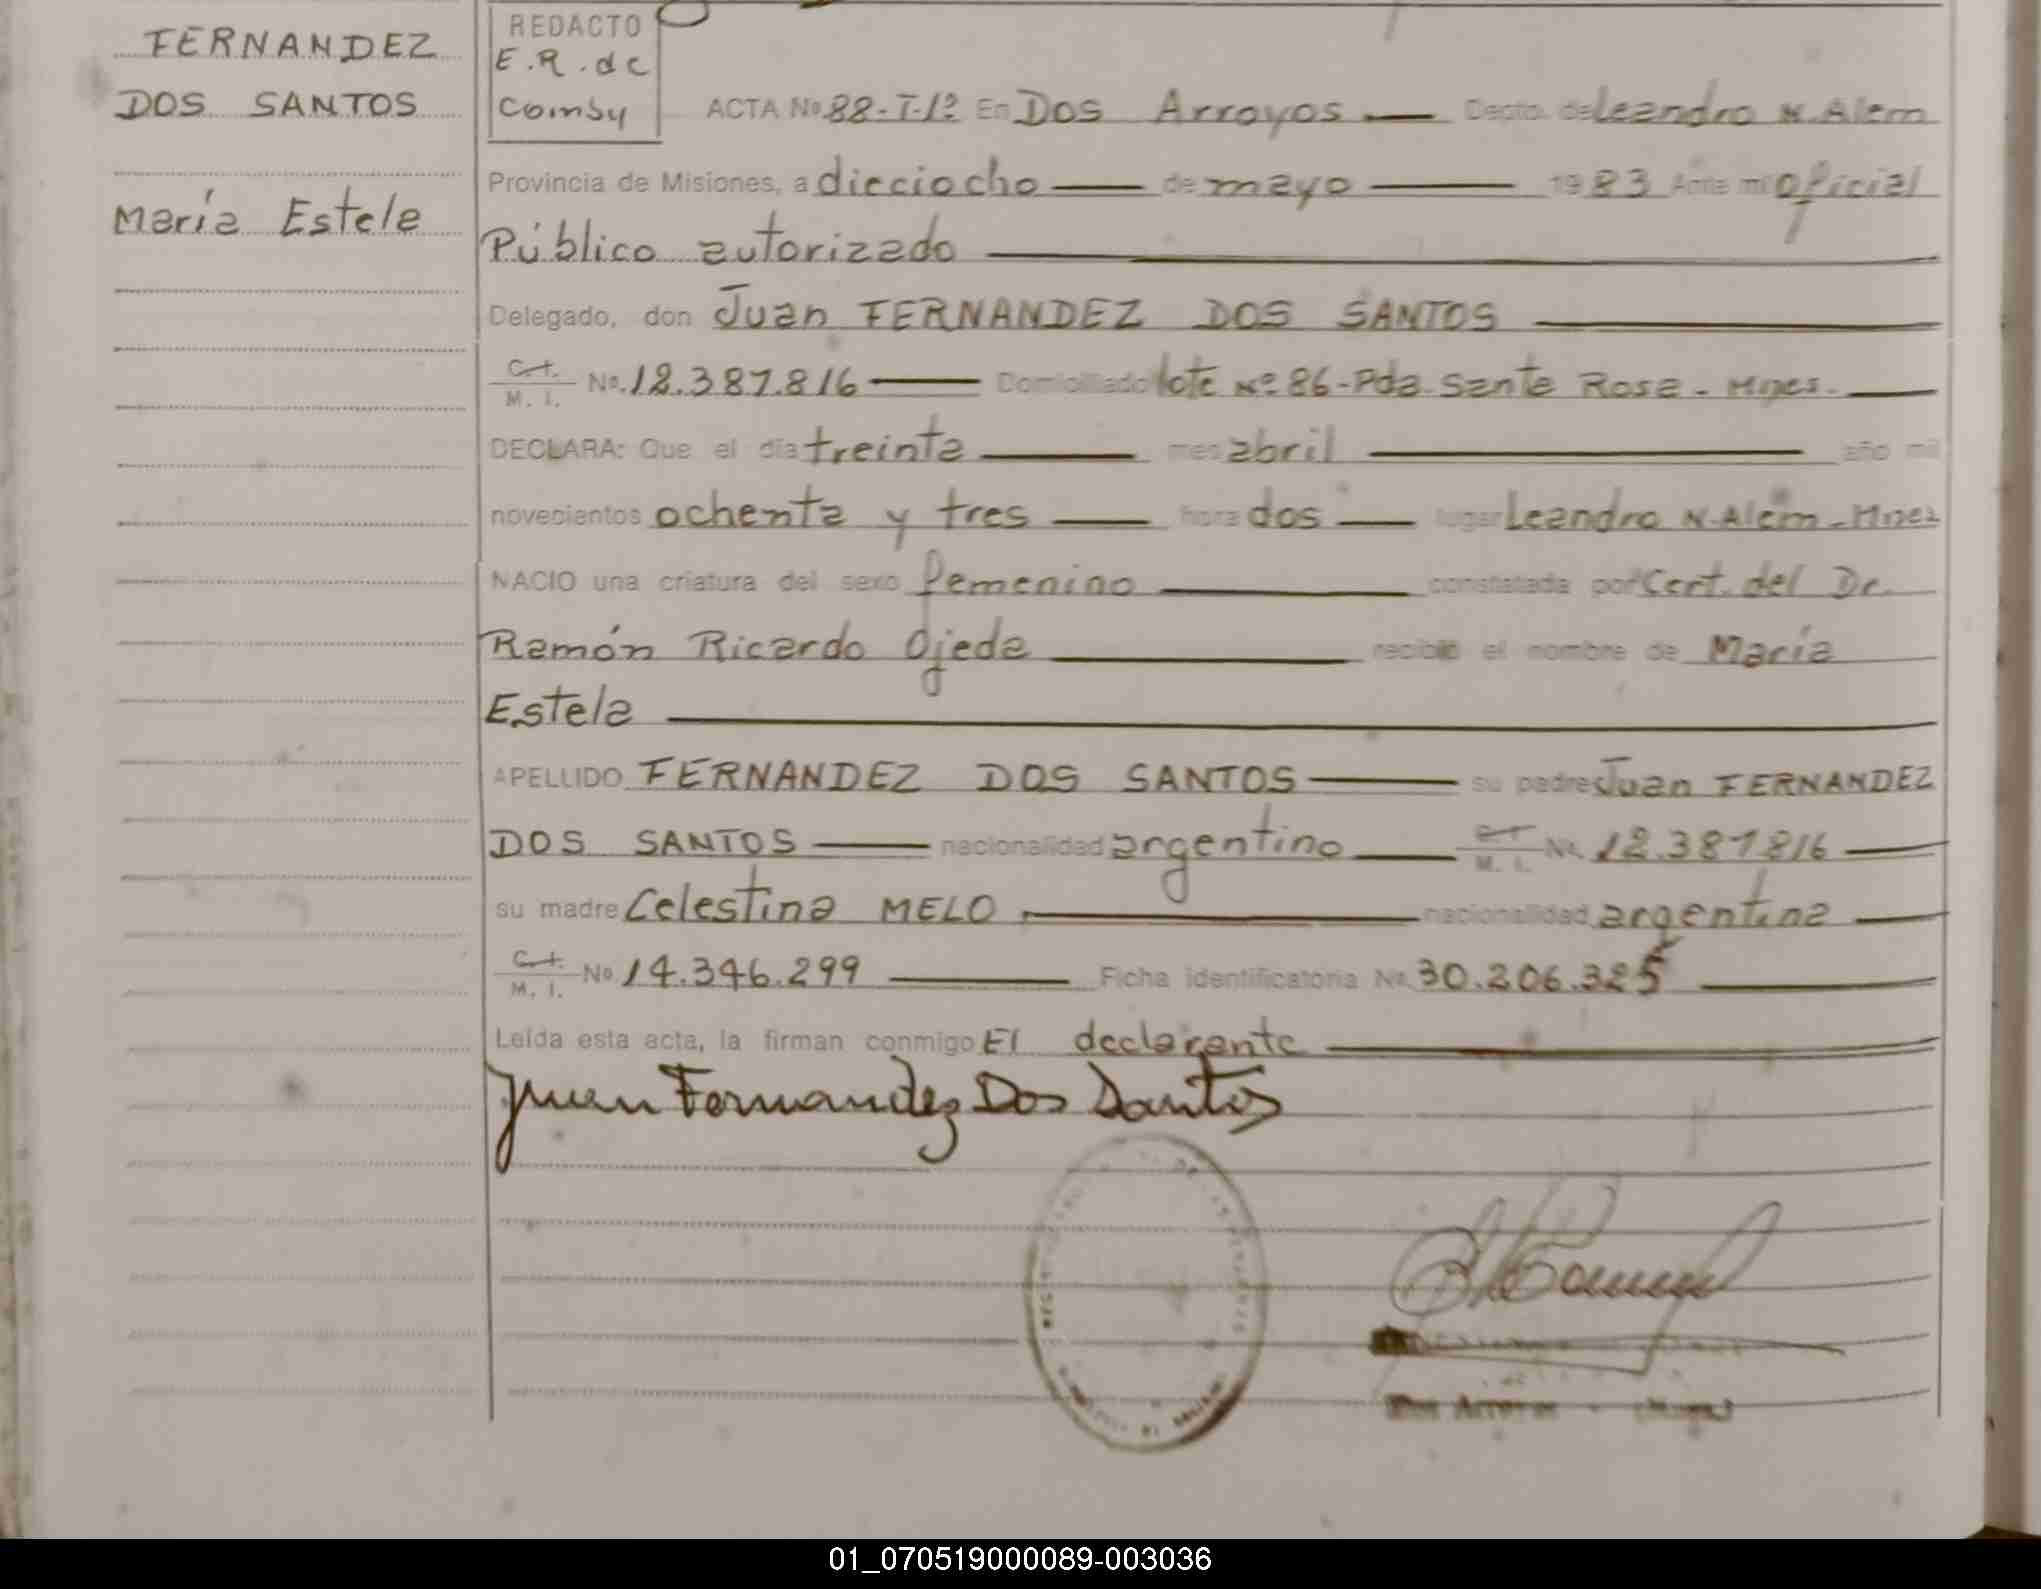 FERNANDEZ
DOS SANTOS
María Estela
REDACTO
E.R. de
Comby
ACTA No. 88-T-1º En Dos Arroyos — Depto. de Leandro N. Alem
Provincia de Misiones, a dieciocho — de mayo — 1983 Ante mi oficial
Público autorizado —
Delegado, don Juan FERNANDEZ DOS SANTOS —
C.I.
M. I. No. 12.387.816 — Domiciliado lote Nº 86-Pda. Santa Rosa - Mnes. —
DECLARA: Que el día treinta — mes abril — año mil
novecientos ochenta y tres — hora dos — lugar Leandro N. Alem - Mnes
NACIO una criatura del sexo femenino — constatada por Cert. del Dr.
Ramón Ricardo Ojeda — recibió el nombre de María
Estela —
APELLIDO FERNANDEZ DOS SANTOS — su padre Juan FERNANDEZ
DOS SANTOS — nacionalidad argentino — C.I.
M. I. No. 12.387816 —
su madre Celestina MELO — nacionalidad argentina —
C.I.
M. I. No. 14.346.299 — Ficha identificatoria No. 30.206.325 —
Leída esta acta, la firman conmigo El declarante —
Juan Fernandez Dos Santos
Dos Arroyos
01_070519000089-003036